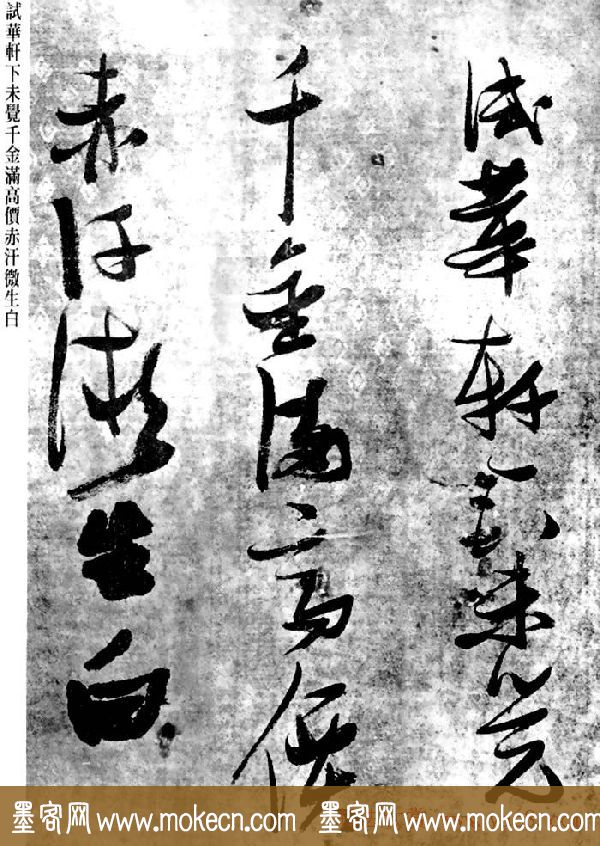 試華軒下未覺
千金滿高價
赤汗微生白
試華軒下未覺千金滿高價赤汗微生白
墨客网 www.mokecn.com 墨客网 www.mokecn.com